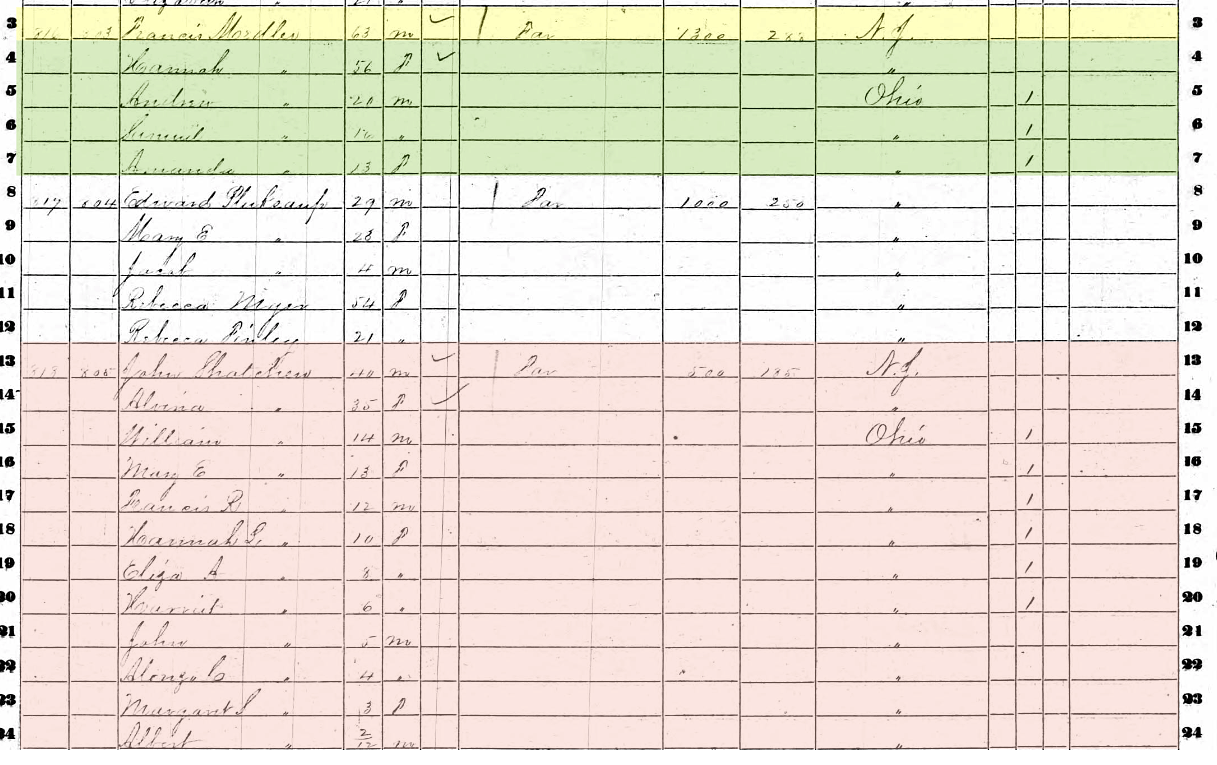 3 Francis 63 m / Far 1300 N. J. 3
4 Hannah " 56 F " 4
5 Andrew " 20 m Ohio 1 5
6 " " " 1 6
7 Amanda " 13 F " 1 7
8 804 Edward 29 m / Far 1000 250 " 8
9 Mary E " 28 F " 9
10 Jacob " 4 m " 10
11 Rebecca Myer 54 F " 11
12 Rebecca Finley 21 " " 12
13 805 John 40 m / Far 500 N. J. 13
14 Alvina " 35 F " 14
15 William " 14 m Ohio 1 15
16 Mary E " 13 F " 1 16
17 Francis R " 12 m " 1 17
18 Hannah L " 10 F " 1 18
19 Eliza A " 8 " " 1 19
20 Harriet " 6 " " 1 20
21 John " 5 m " 21
22 Alonzo C " 4 " " 22
23 Margaret S " 3 F " 23
24 Albert " 2/12 m 24